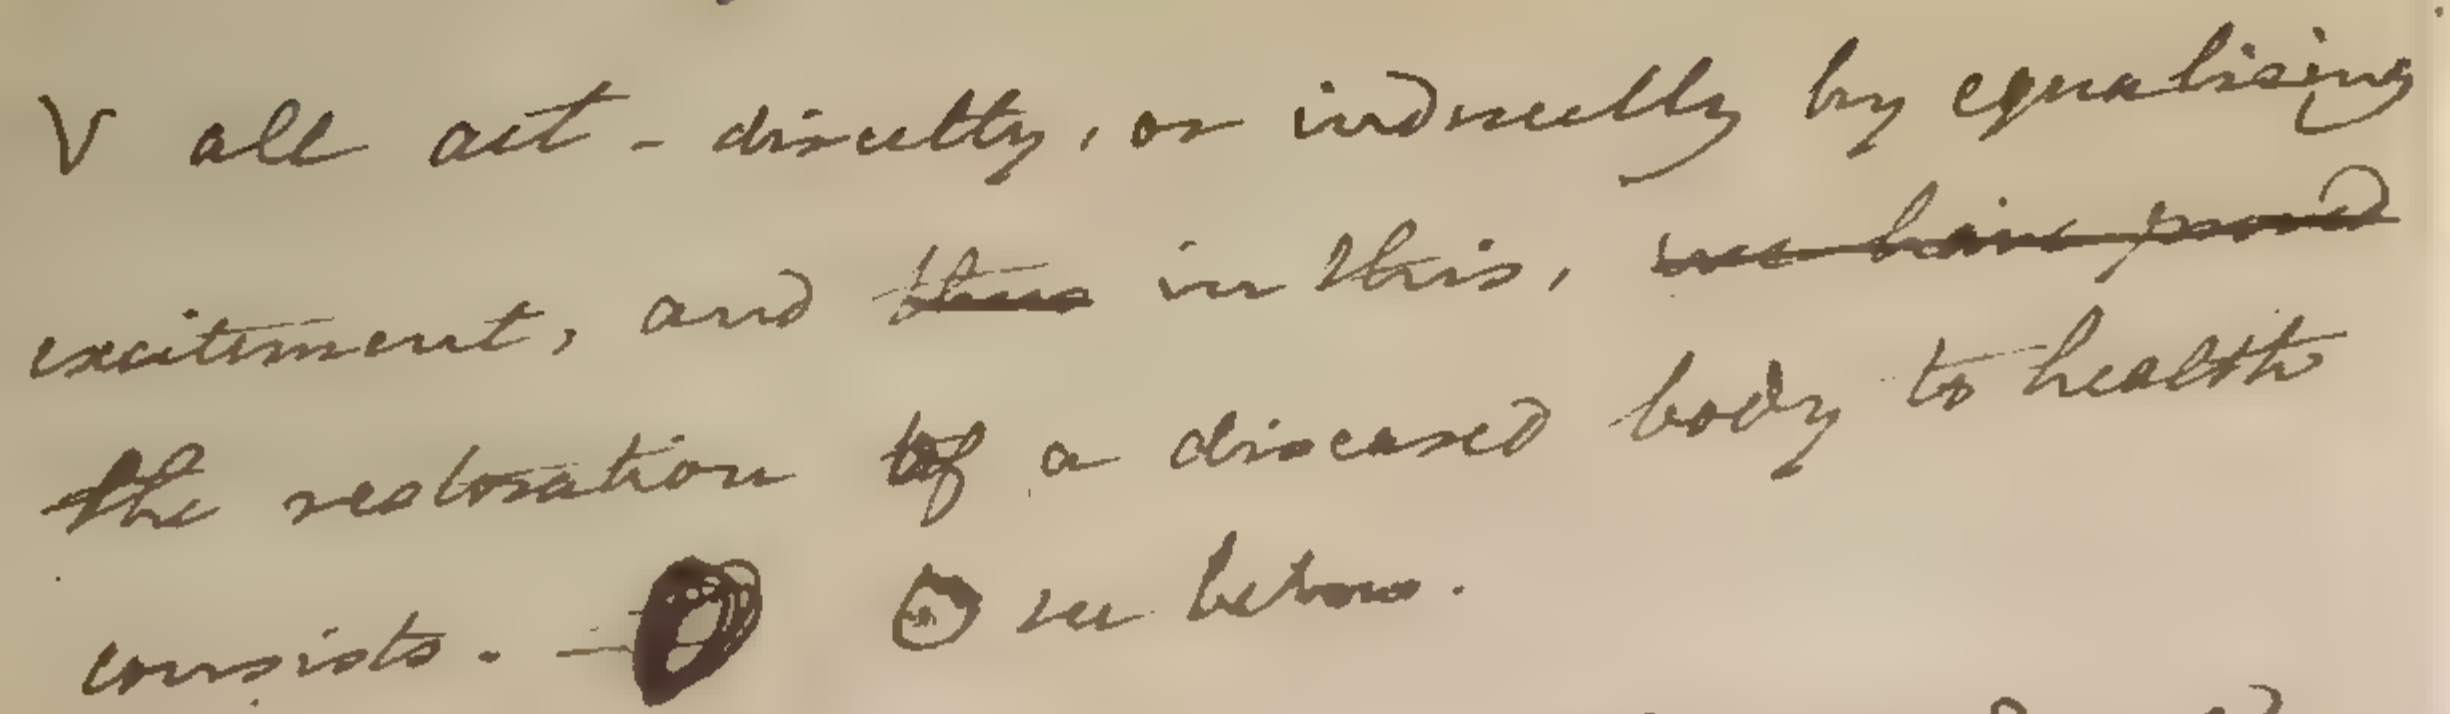 V all act - directly, or indirectly by equalising
excitement, and thus in this, we have proved
the restoration of a diseased body to health
consists. - ⊙ see below.